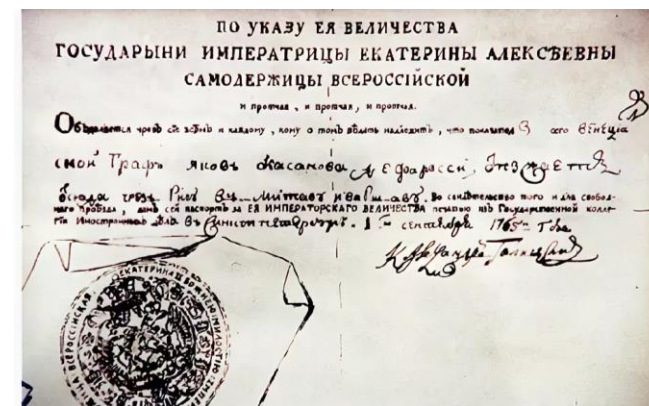 ПО УКАЗУ ЕЯ ВЕЛИЧЕСТВА
ГОСУДАРЫНИ ИМПЕРАТРИЦЫ ЕКАТЕРИНЫ АЛЕКСѢЕВНЫ
САМОДЕРЖИЦЫ ВСЕРОССІЙСКОЙ
и протчая, и протчая, и протчая.
Объявляется чрезъ сіе всѣмъ и каждому, кому о томъ вѣдать надлежитъ, что показател сего Венеціа
ской Графъ Яковъ Касанова Де Фаросси,
чрезъ Ригу въ Митавъ и Варшаву. Во свидѣтельство того и для свобод-
наго проѣзда, данъ сей паспортъ за ЕЯ ИМПЕРАТОРСКАГО ВЕЛИЧЕСТВА печатью изъ Государственной колле-
гіи Иностранныхъ дѣлъ въ Санктпетербургѣ. 1 сентября 1765 Года
ЕКАТЕРИНА
ВСЕРОССІЙСКАЯ